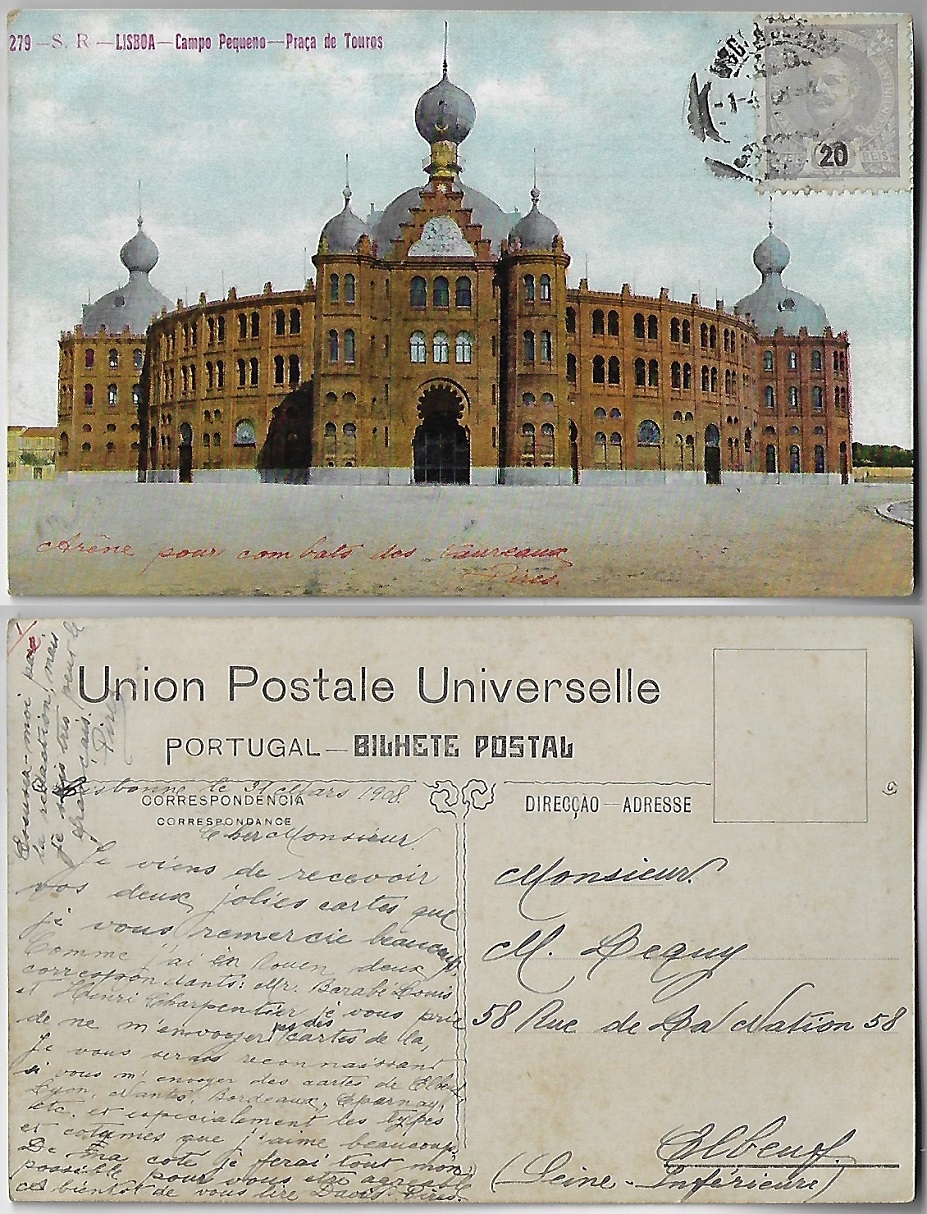 279 — S. R — LISBOA — Campo Pequeno — Praça de Touros
20
REIS
Arène pour combats des Taureaux
Pires.
Union Postale Universelle
PORTUGAL — BILHETE POSTAL
CORRESPONDENCIA
CORRESPONDANCE
DIRECÇÃO — ADRESSE
Lisbonne le 31 Mars 1908.
Cher Monsieur
Je viens de recevoir
vos deux jolies cartes que
je vous remercie beaucoup.
Comme j'ai en Rouen deux
correspondants: Mr. Barabé Louis
et Henri Charpentier je vous prie
de ne m'envoyer pas des cartes de la,
Je vous serais reconnaissant
si vous m'envoyer des cartes de Elbeuf,
Lyon, Nantes, Bordeaux, Epernay,
etc. et especialement les types
et cotumes que j'aime beaucoup.
De ma cote je ferai tout mon
possible pour vous etre agreable
bientôt de vous lire David Pires.
Excusez-moi par
la redaction, mais
je sais très peu le
français.
Pires
Monsieur
M. Lequy
58 Rue de La Nation 58
Elbeuf.
(Seine-Inférieure)